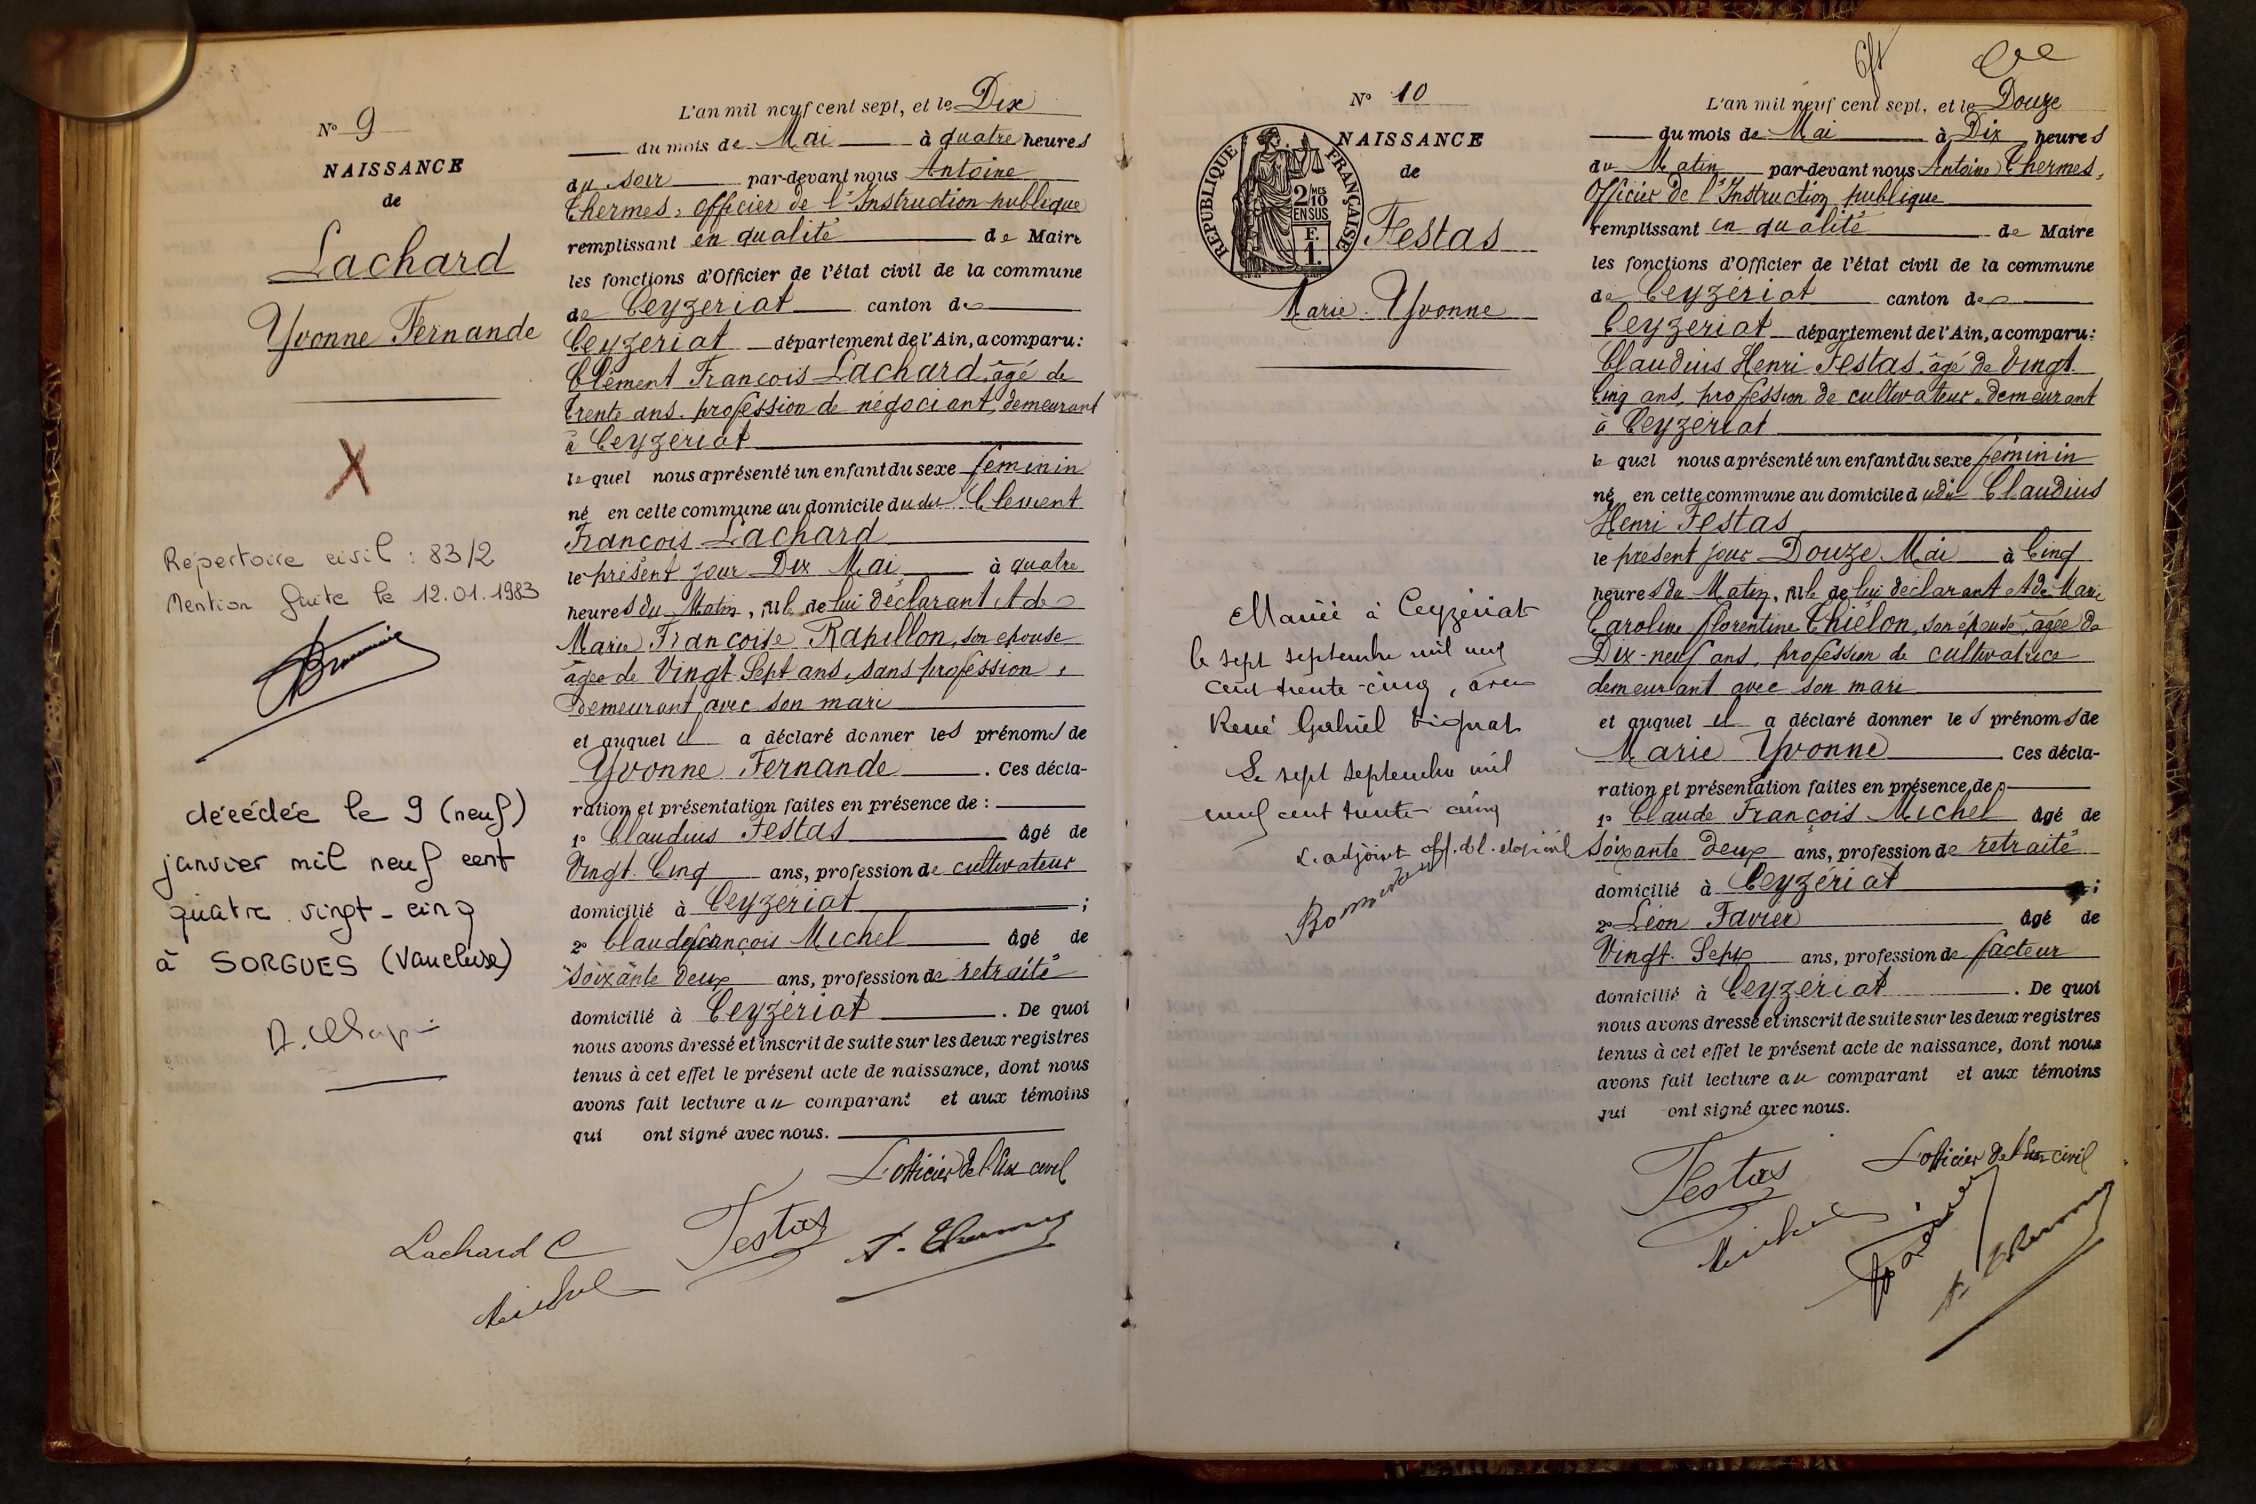 Nº 9
NAISSANCE
de
Lachard
Yvonne Fernande
X
Répertoire civil : 83/2
Mention faite le 12.01.1983
décédée le 9 (neuf)
janvier mil neuf cent
quatre vingt-cinq
à SORGUES (Vaucluse)
L'an mil neuf cent sept, et le Dix
du mois de Mai à quatre heures
du soir par-devant nous Antoine
Thermes, officier de l'Instruction publique
remplissant en qualité de Maire
les fonctions d'Officier de l'état civil de la commune
de Ceyzériat canton de
Ceyzériat département de l'Ain, a comparu:
Clément François Lachard, âgé de
trente ans, profession de négociant, demeurant
à Ceyzériat
lequel nous a présenté un enfant du sexe féminin
né en cette commune au domicile du dit Clément
François Lachard
le présent jour Dix Mai à quatre
heures du Matin, fille de lui déclarant et de
Marie Françoise Rapillon, son épouse
âgée de Vingt Sept ans, sans profession,
demeurant avec son mari
et auquel il a déclaré donner les prénoms de
Yvonne Fernande. Ces décla-
ration et présentation faites en présence de :
1º Claudius Festas âgé de
Vingt Cinq ans, profession de cultivateur
domicilié à Ceyzériat ;
2º Claude françois Michel âgé de
Soixante deux ans, profession de retraité
domicilié à Ceyzériat. De quoi
nous avons dressé et inscrit de suite sur les deux registres
tenus à cet effet le présent acte de naissance, dont nous
avons fait lecture au comparant et aux témoins
qui ont signé avec nous.
L'officier de l'état civil
Lachard C
Festas
A. Thermes
Michel
Nº 10
NAISSANCE
de
RÉPUBLIQUE FRANÇAISE
2/10 MES
EN SUS
F.
1.
Festas
Marie Yvonne
Mariée à Ceyzériat
le sept septembre mil neuf
cent trente-cinq, avec
René Gabriel
Le sept septembre mil
neuf cent trente cinq
L'adjoint off. de l'état civil
L'an mil neuf cent sept, et le Douze
du mois de Mai à Dix heures
du Matin par-devant nous Antoine Thermes,
Officier de l'Instruction publique
remplissant en qualité de Maire
les fonctions d'Officier de l'état civil de la commune
de Ceyzériat canton de
Ceyzériat département de l'Ain, a comparu:
Claudius Henri Festas, âgé de Vingt
Cinq ans, profession de cultivateur, demeurant
à Ceyzériat
lequel nous a présenté un enfant du sexe féminin
né en cette commune au domicile du dit Claudius
Henri Festas
le présent jour Douze Mai à Cinq
heures du Matin, fille de lui déclarant et de Marie
Caroline florentine Thiélon, son épouse, âgée de
Dix-neuf ans, profession de cultivatrice
demeurant avec son mari
et auquel il a déclaré donner les prénoms de
Marie Yvonne Ces décla-
ration et présentation faites en présence de :
1º Claude François Michel âgé de
Soixante deux ans, profession de retraité
domicilié à Ceyzériat ;
2º Léon Favier âgé de
Vingt Sept ans, profession de facteur
domicilié à Ceyzériat. De quoi
nous avons dressé et inscrit de suite sur les deux registres
tenus à cet effet le présent acte de naissance, dont nous
avons fait lecture au comparant et aux témoins
qui ont signé avec nous.
L'officier de l'état civil
Festas
Michel
Favier
A. Thermes